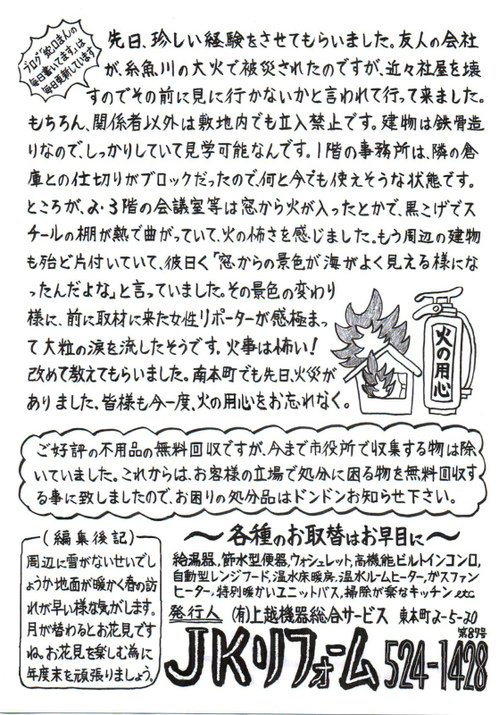 ブログ「蛇口まんの
毎日書いてます」は
毎日更新しています
先日、珍しい経験をさせてもらいました。友人の会社
が、糸魚川の大火で被災されたのですが、近々社屋を壊
すのでその前に見に行かないかと言われて行って来ました。
もちろん、関係者以外は敷地内でも立入禁止です。建物は鉄骨造
りなので、しっかりしていて見学可能なんです。1階の事務所は、隣の倉
庫との仕切りがブロックだったので、何と今でも使えそうな状態です。
ところが、2・3階の会議室等は窓から火が入ったとかで、黒こげでス
チールの棚が熱で曲がっていて、火の怖さを感じました。もう周辺の建物
も殆ど片付いていて、彼曰く「窓からの景色が海がよく見える様にな
ったんだよな。」と言っていました。その景色の変わり
様に、前に取材に来た女性リポーターが感極まっ
て大粒の涙を流したそうです。火事は怖い!
改めて教えてもらいました。南本町でも先日、火災が
ありました。皆様も今一度、火の用心をお忘れなく。
火の用心
ご好評の不用品の無料回収ですが、今まで市役所で収集する物は除
いていました。これからは、お客様の立場で処分に困る物を無料回収す
る事に致しましたので、お困りの処分品はドンドンお知らせ下さい。
(編集後記)
周辺に雪がないせいでし
ょうか地面が暖かく春の訪
れが早い様な気がします。
月が替わるとお花見です
ね。お花見を楽しむ為に
年度末を頑張りましょう。
〜各種のお取替はお早目に〜
給湯器、節水型便器、ウォシュレット、高機能ビルトインコンロ、
自動型レンジフード、温水床暖房、温水ルームヒーター、ガスファン
ヒーター、特別暖かいユニットバス、掃除が楽なキッチンetc
発行人 (有)上越機器総合サービス 東本町2-5-20
第89号
JKリフォーム 524-1428